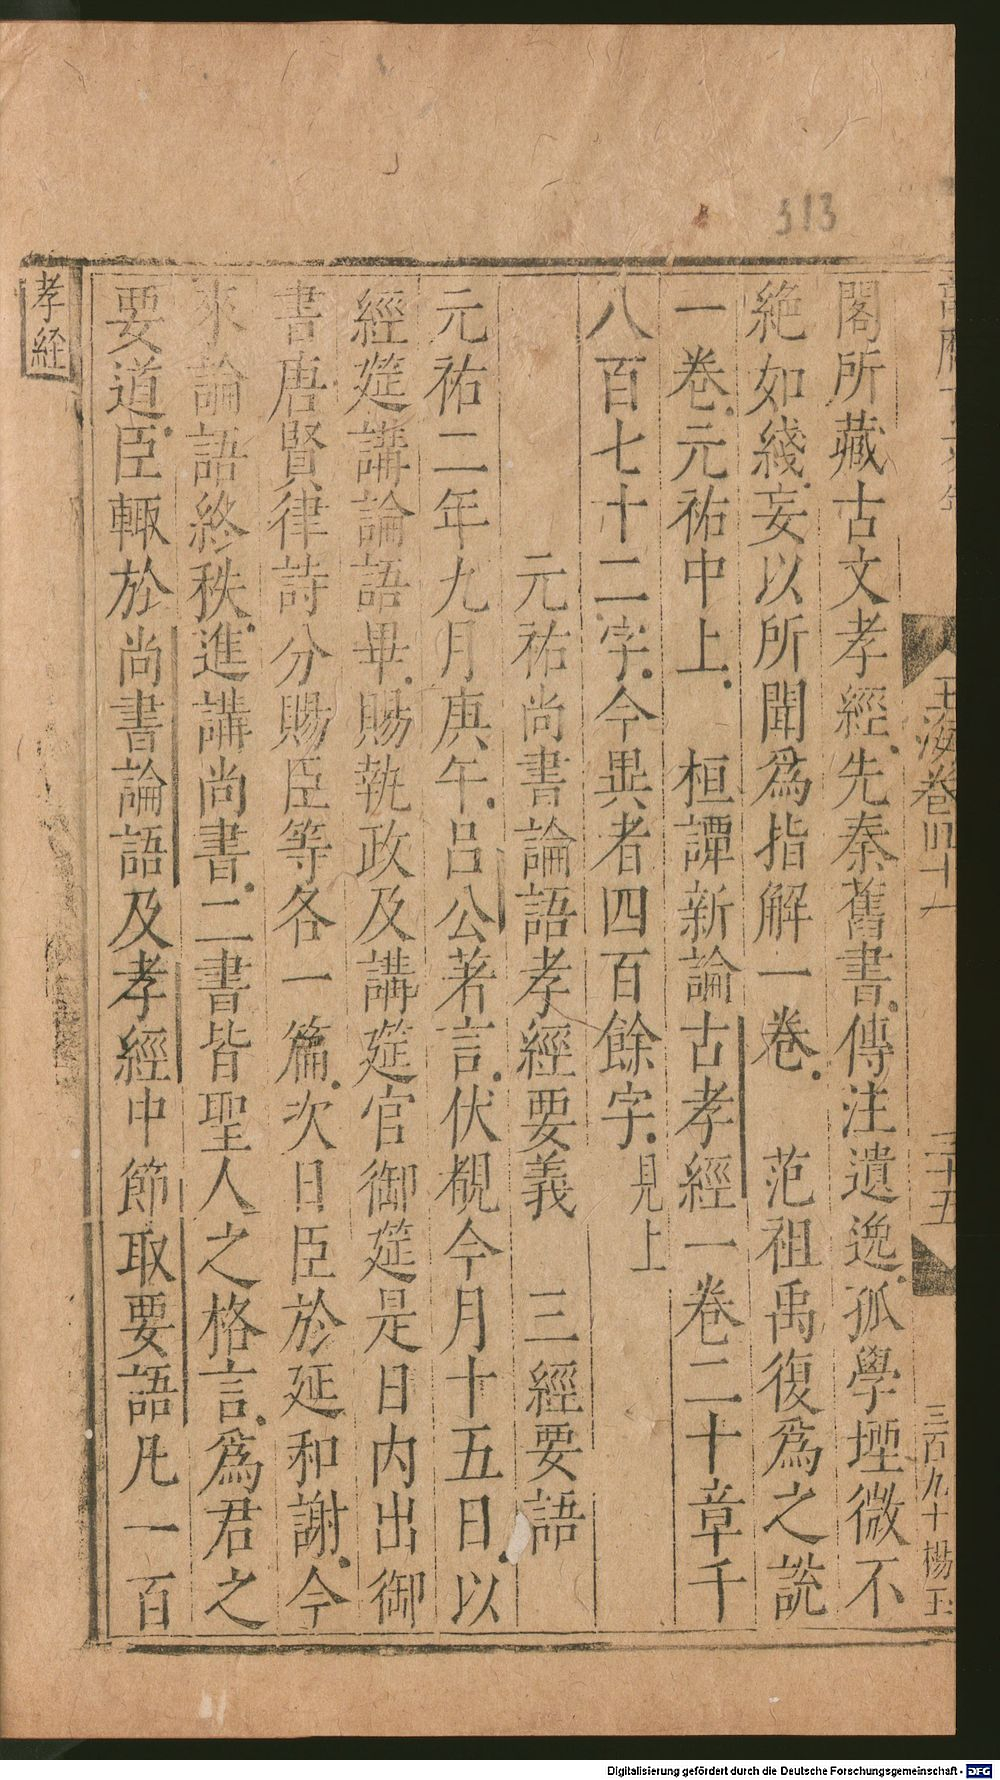 313
玉海卷四十一
三十五
三百九十 楊玉
閣所藏古文孝經先秦舊書傳注遺逸孤學堙微不
絶如綫妄以所聞爲指解一卷　范祖禹復爲之説
一卷元祐中上　桓譚新論古孝經一卷二十章千
八百七十二字今異者四百餘字見上
元祐尚書論語孝經要義　三經要語
元祐二年九月庚午吕公著言伏覩今月十五日以
經筵講論語畢賜執政及講筵官御筵是日内出御
書唐賢律詩分賜臣等各一篇次日臣於延和謝今
來論語終秩進講尚書二書皆聖人之格言爲君之
要道臣輙於尚書論語及孝經中節取要語凡一百
孝経
Digitalisierung gefördert durch die Deutsche Forschungsgemeinschaft - DFG